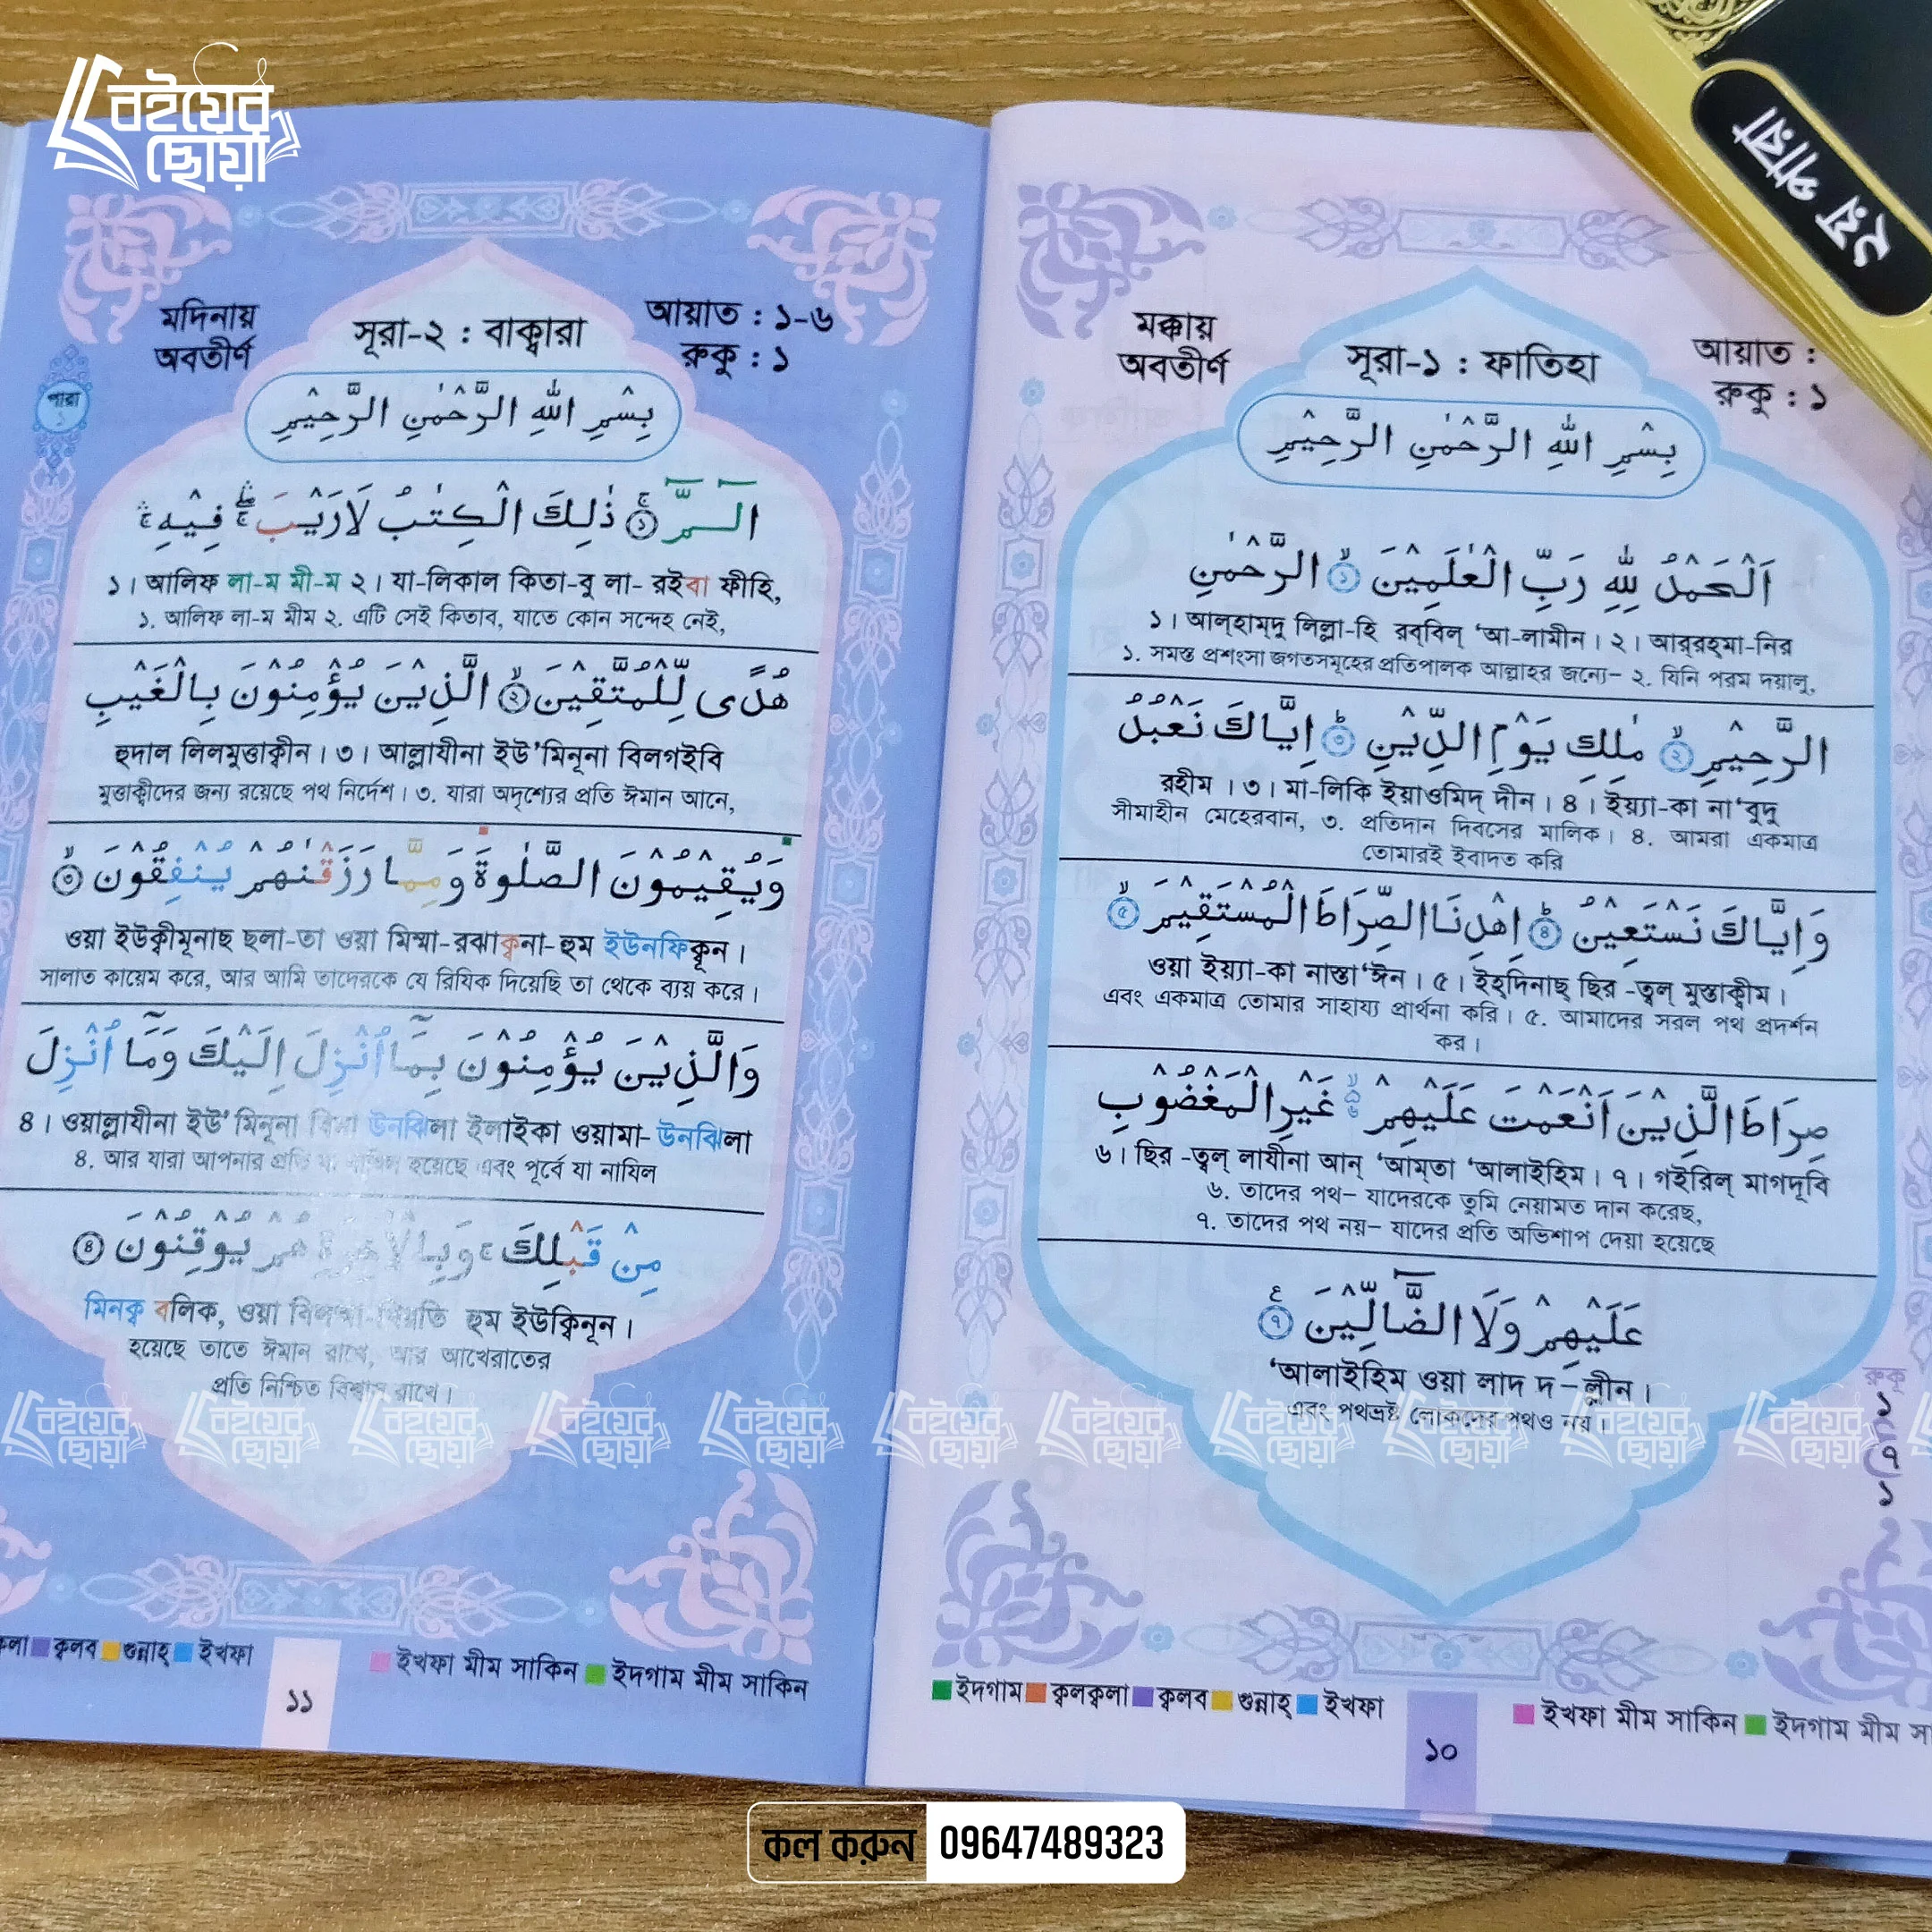 বইয়ের
ছোয়া
২য় পারা
মক্কায়
অবতীর্ণ
সূরা-১ : ফাতিহা
আয়াত :
রুকু : ১
بِسْمِ اللّٰهِ الرَّحْمٰنِ الرَّحِيْمِ
اَلْحَمْدُ لِلّٰهِ رَبِّ الْعٰلَمِيْنَ ۙ﴿١﴾ الرَّحْمٰنِ
১। আল্‌হাম্‌দু লিল্লা-হি রব্‌বিল্ ‘আ-লামীন। ২। আর্‌রহ্‌মা-নির
১. সমস্ত প্রশংসা জগতসমূহের প্রতিপালক আল্লাহর জন্যে– ২. যিনি পরম দয়ালু,
الرَّحِيْمِ ۙ﴿٢﴾ مٰلِكِ يَوْمِ الدِّيْنِ ؕ﴿٣﴾ اِيَّاكَ نَعْبُدُ
রহীম । ৩। মা-লিকি ইয়াওমিদ্ দীন। ৪। ইয়্যা-কা না‘বুদু
সীমাহীন মেহেরবান, ৩. প্রতিদান দিবসের মালিক। ৪. আমরা একমাত্র
তোমারই ইবাদত করি
وَاِيَّاكَ نَسْتَعِيْنُ ؕ﴿٤﴾ اِهْدِنَا الصِّرَاطَ الْمُسْتَقِيْمَ ۙ﴿٥﴾
ওয়া ইয়্যা-কা নাস্তা‘ঈন। ৫। ইহ্‌দিনাছ্ ছির -ত্বল্ মুস্তাক্বীম।
এবং একমাত্র তোমার সাহায্য প্রার্থনা করি। ৫. আমাদের সরল পথ প্রদর্শন
কর।
صِرَاطَ الَّذِيْنَ اَنْعَمْتَ عَلَيْهِمْ ۙ۬ۦ غَيْرِ الْمَغْضُوْبِ
৬। ছির -ত্বল্ লাযীনা আন্ ‘আম্‌তা ‘আলাইহিম। ৭। গইরিল্ মাগদূবি
৬. তাদের পথ– যাদেরকে তুমি নেয়ামত দান করেছ,
৭. তাদের পথ নয়– যাদের প্রতি অভিশাপ দেয়া হয়েছে
عَلَيْهِمْ وَلَا الضَّآلِّيْنَ ﴿٧﴾ ع
‘আলাইহিম ওয়া লাদ দ–ল্লীন।
এবং পথভ্রষ্ট লোকদের পথও নয়।
রুকু
১
৭
১
ইদগাম ক্বলক্বলা ক্বলব গুন্নাহ্ ইখফা ইখফা মীম সাকিন ইদগাম মীম
১০
মদিনায়
অবতীর্ণ
সূরা-২ : বাক্বারা
আয়াত : ১-৬
রুকু : ১
পারা
১
بِسْمِ اللّٰهِ الرَّحْمٰنِ الرَّحِيْمِ
الٓـمّٓ ۚ﴿١﴾ ذٰلِكَ الْكِتٰبُ لَا رَيْبَ ۛۖۚ فِيْهِ ۛۚ
১। আলিফ লা-ম মী-ম ২। যা-লিকাল কিতা-বু লা- রইবা ফীহি,
১. আলিফ লা-ম মীম ২. এটি সেই কিতাব, যাতে কোন সন্দেহ নেই,
هُدًى لِّلْمُتَّقِيْنَ ۙ﴿٢﴾ الَّذِيْنَ يُؤْمِنُوْنَ بِالْغَيْبِ
হুদাল লিলমুত্তাক্বীন। ৩। আল্লাযীনা ইউ’মিনূনা বিলগইবি
মুত্তাক্বীদের জন্য রয়েছে পথ নির্দেশ। ৩. যারা অদৃশ্যের প্রতি ঈমান আনে,
وَيُقِيْمُوْنَ الصَّلٰوةَ وَمِمَّا رَزَقْنٰهُمْ يُنْفِقُوْنَ ۙ﴿٣﴾
ওয়া ইউক্বীমূনাছ ছলা-তা ওয়া মিম্মা-রঝাক্বনা-হুম ইউনফিক্বূন।
সালাত কায়েম করে, আর আমি তাদেরকে যে রিযিক দিয়েছি তা থেকে ব্যয় করে।
وَالَّذِيْنَ يُؤْمِنُوْنَ بِمَآ اُنْزِلَ اِلَيْكَ وَمَآ اُنْزِلَ
৪। ওয়াল্লাযীনা ইউ’মিনূনা বিমা উনঝিলা ইলাইকা ওয়ামা- উনঝিলা
৪. আর যারা আপনার প্রতি যা নাযিল হয়েছে এবং পূর্বে যা নাযিল
مِنْ قَبْلِكَ ۚ وَبِالْاٰخِرَةِ هُمْ يُوْقِنُوْنَ ﴿٤﴾
মিনক্ব বলিক, ওয়া হুম ইউক্বিনূন।
হয়েছে তাতে ঈমান রাখে, আর আখেরাতের
প্রতি নিশ্চিত বিশ্বাস রাখে।
ক্বলব গুন্নাহ্ ইখফা ইখফা মীম সাকিন ইদগাম মীম সাকিন
১১
কল করুন 09647489323